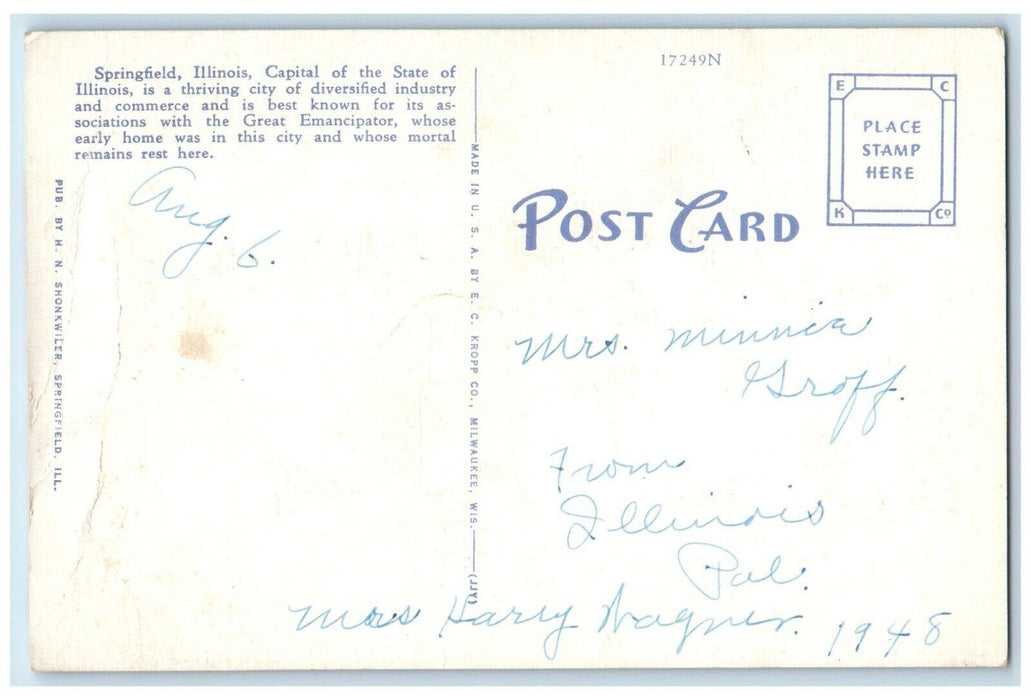 Springfield, Illinois, Capital of the State of
Illinois, is a thriving city of diversified industry
and commerce and is best known for its as-
sociations with the Great Emancipator, whose
early home was in this city and whose mortal
remains rest here.
Aug. 6.
PUB. BY H. N. SHONKWILER, SPRINGFIELD, ILL.
MADE IN U. S. A. BY E. C. KROPP CO., MILWAUKEE, WIS.
(JJY)
17249N
E C
PLACE
STAMP
HERE
K Co
POST CARD
Mrs. Minnia
Groff.
From
Illinois
Pal.
Mrs Harry Wagner. 1948